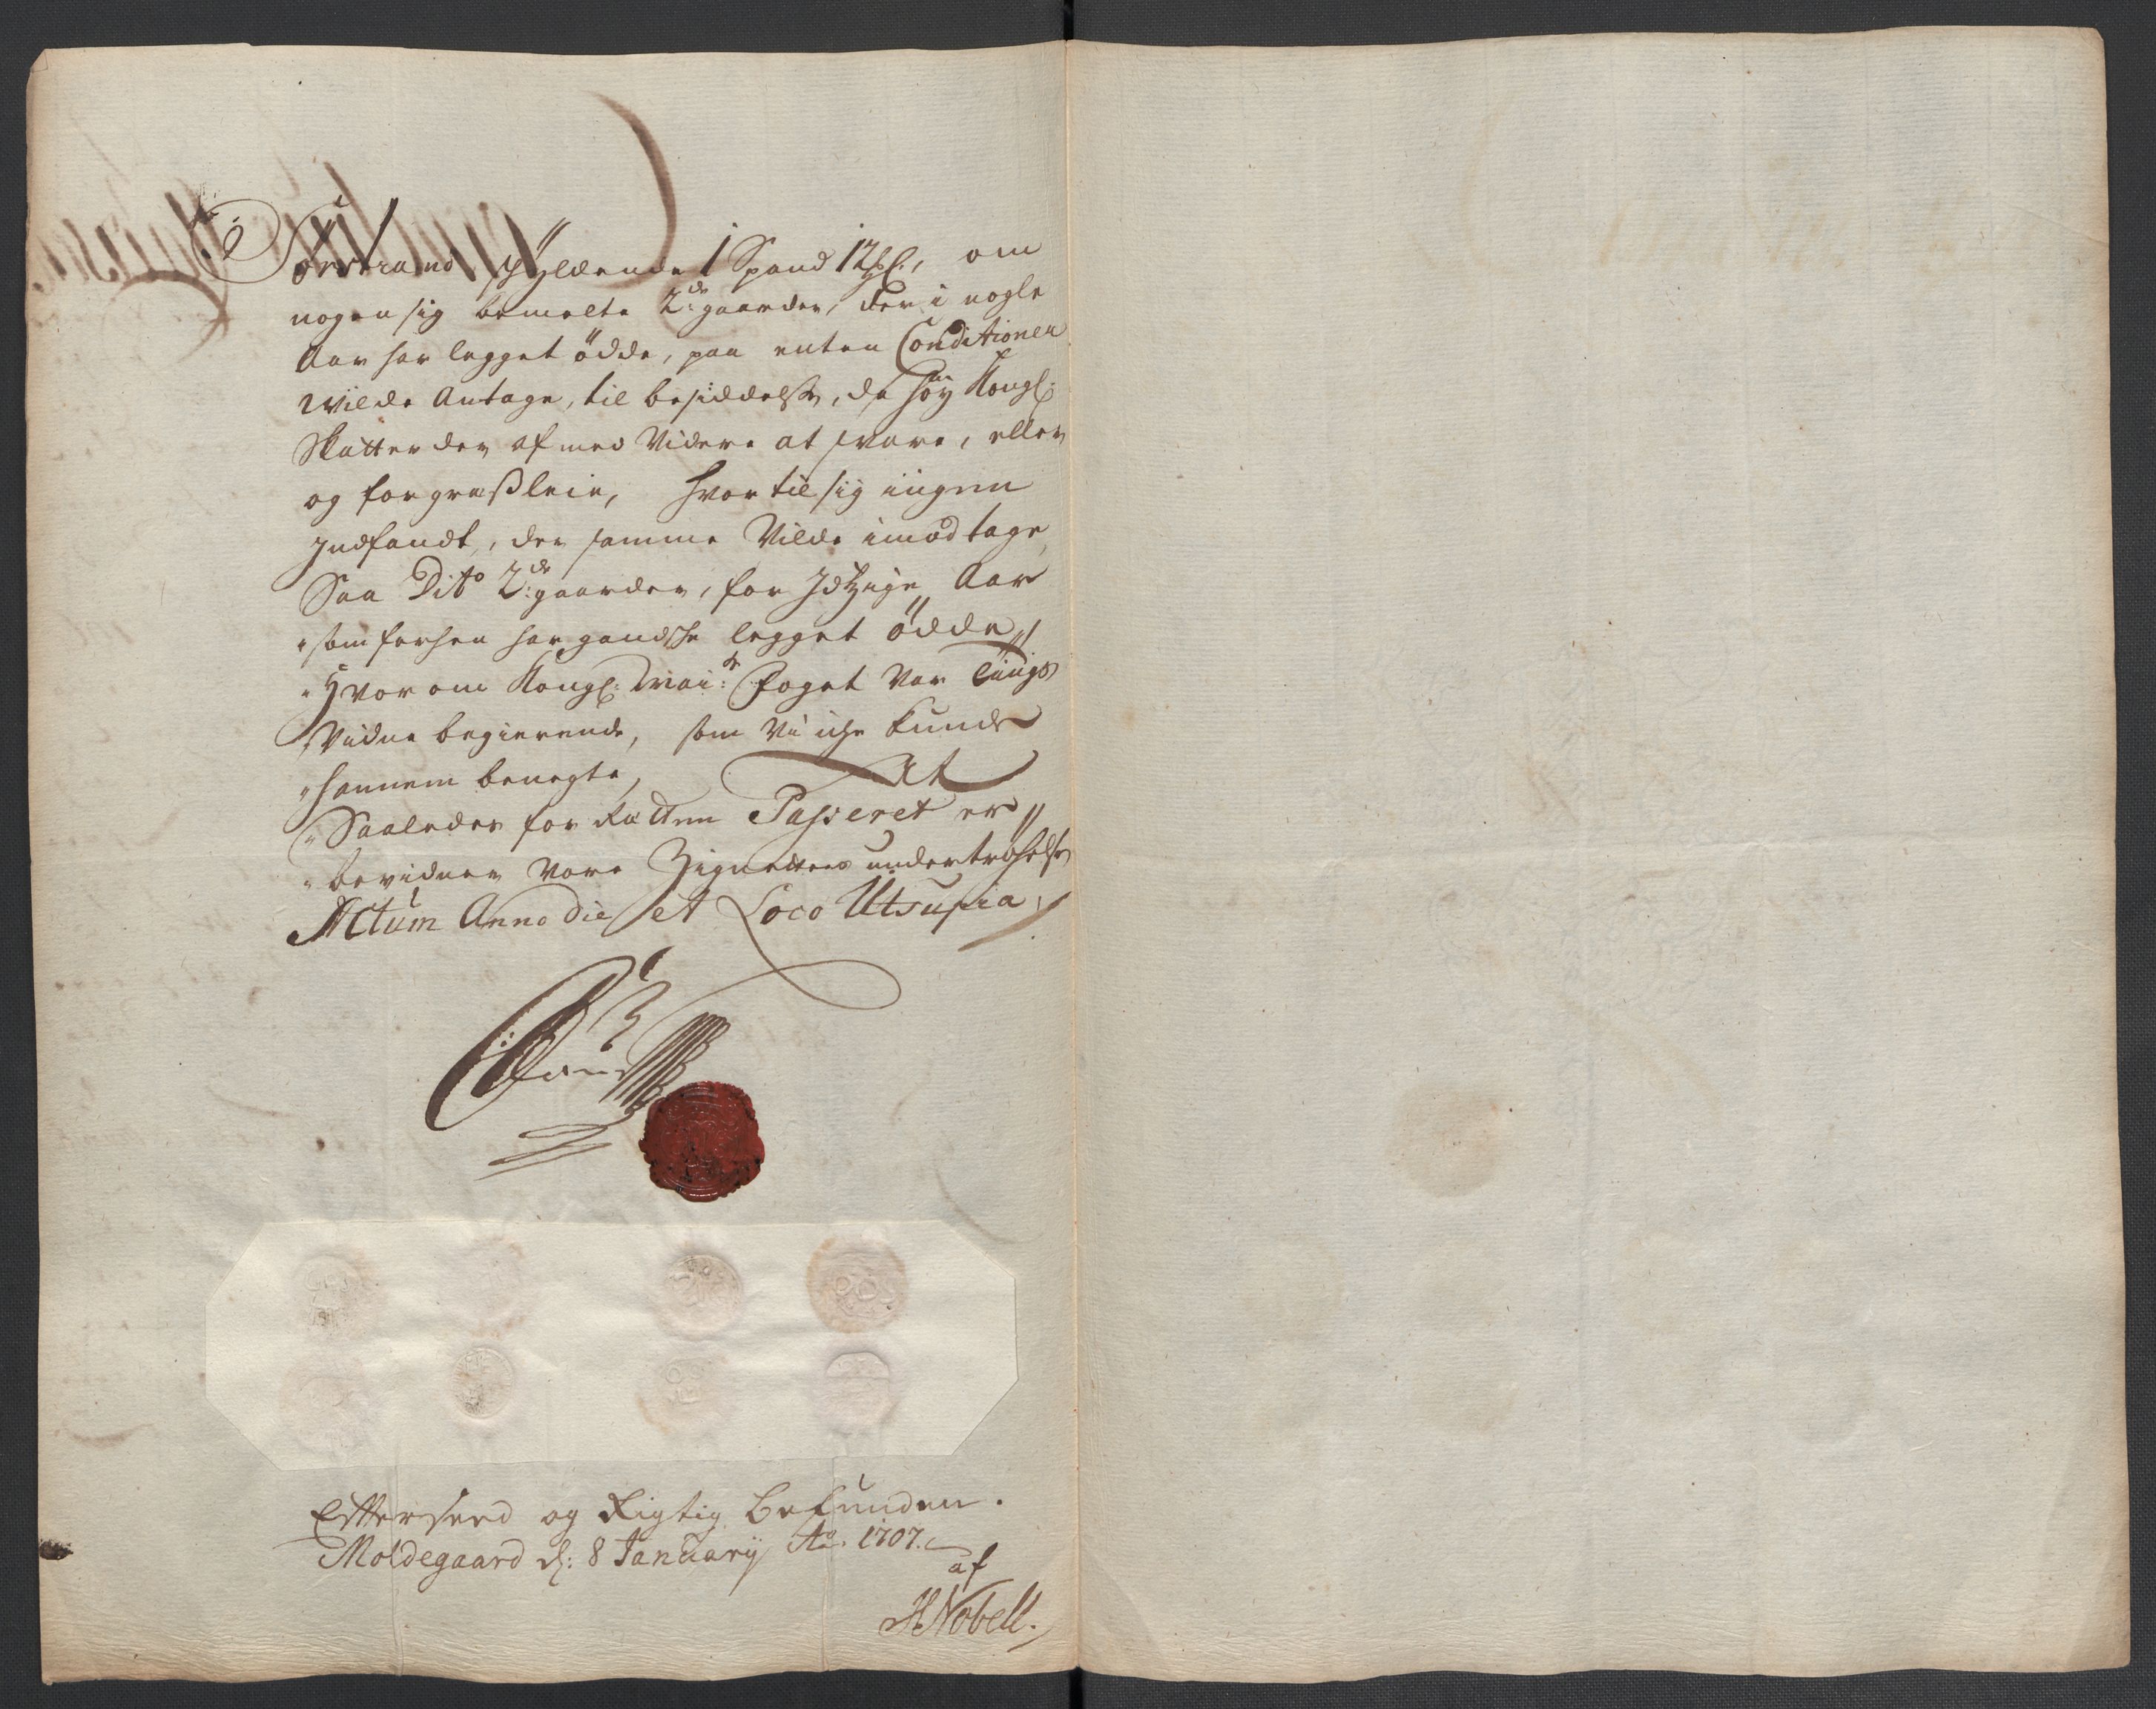 schÿldende 1 Spand 12 , om
nogen sig bemelte 2de gaarder, der i nogle
Aar har legget ödde, paa enten Conditioner
wilde Antage, til besiddelse, de höÿ Kongl:
Skatter der af med Videre at svare, eller
og for græsleie, hvor til sig iingen
Indfandt, der samme Vilde imodtage,
Saa Dito 2de gaarder, for Aar
som forhen har gandsche legget ödde,
Hvor om Kongl: Mai:ts foget Var Tiings
Vidne begierende, som Vi iche kunde
hannem benegte, At
Saaledes for Rætten Passeret er
bevidner Vore Zignetters undertröchelse
Actum Anno die et Loco Ut supra,
Efterseed og Rigtig befunden.
Moldegaard d: 8 Januarij Ao. 1707.
af
H Nobell.